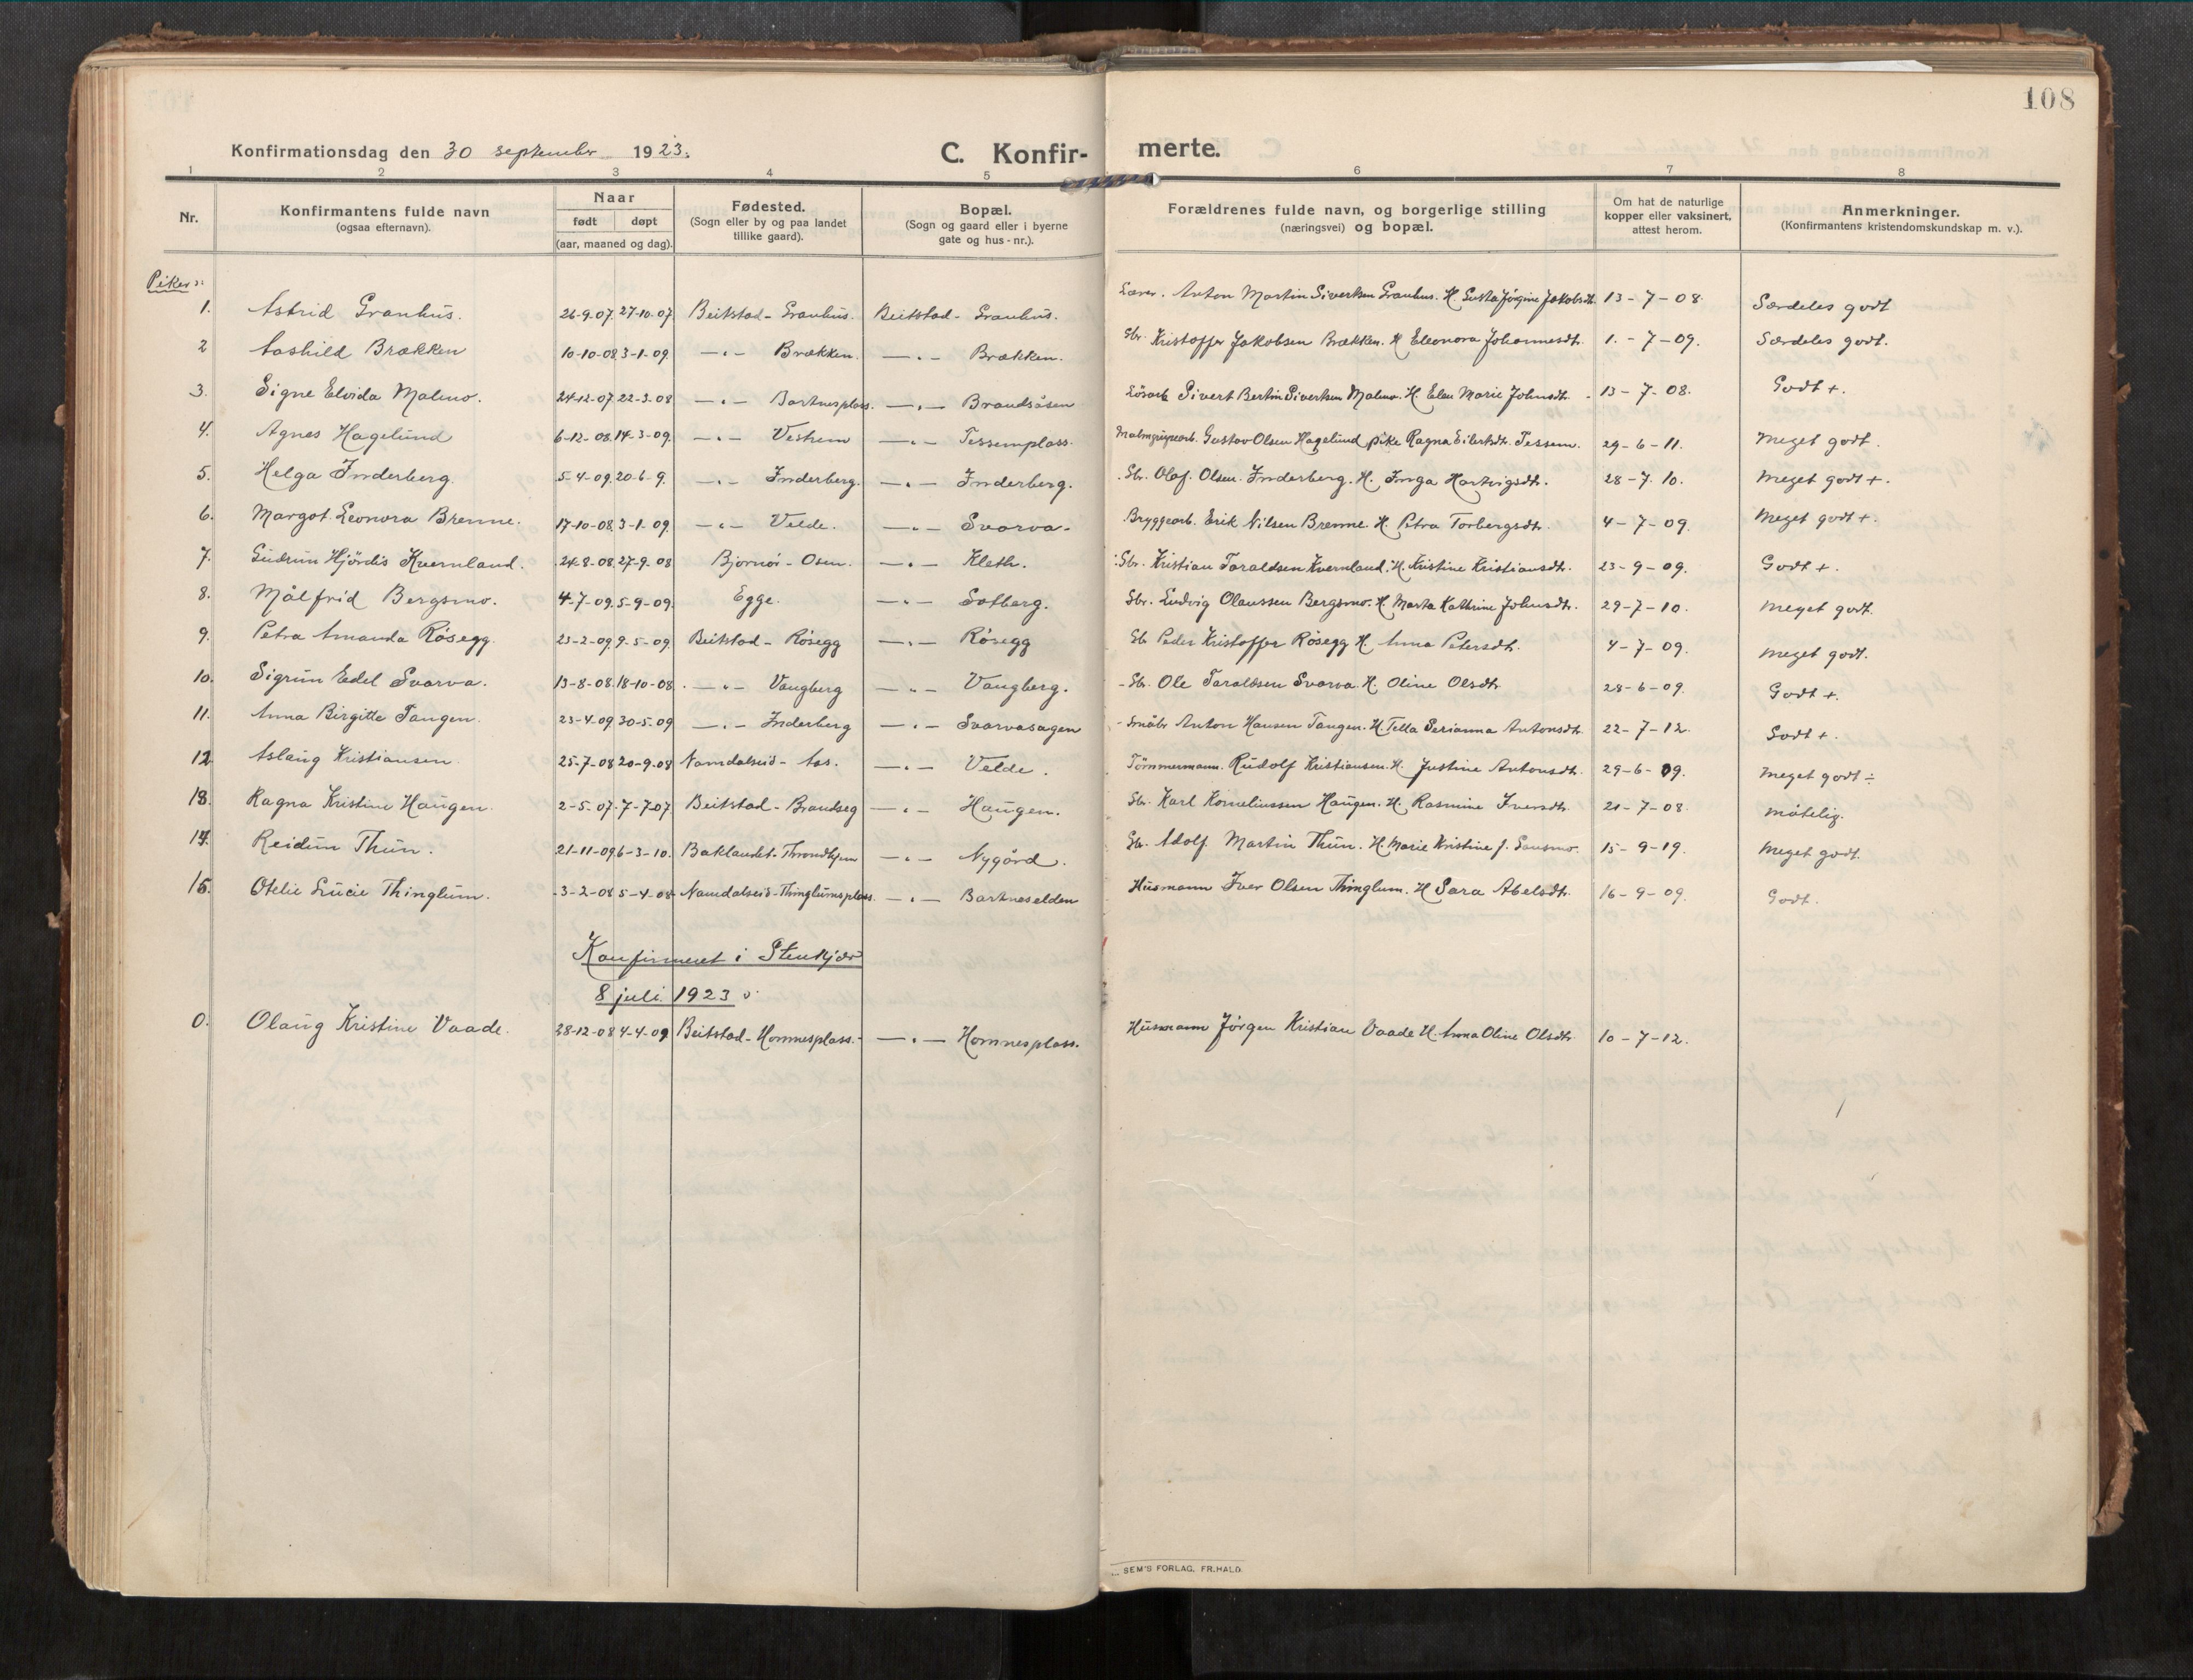 108
Konfirmationsdag den 30 september 1923.
C. Konfir- merte.
1 2 3 4 5 6 7 8
Nr.
Konfirmantens fulde navn
(ogsaa efternavn).
Naar
født døpt
(aar, maaned og dag).
Fødested.
(Sogn eller by og paa landet
tillike gaard).
Bopæl.
(Sogn og gaard eller i byerne
gate og hus-nr.).
Forældrenes fulde navn, og borgerlige stilling
(næringsvei) og bopæl.
Om hat de naturlige
kopper eller vaksinert,
attest herom.
Anmerkninger.
(Konfirmantens kristendomskundskap m. v.).
Piker:
1. Astrid Granhus. 26-9-07. 27-10-07. Beitstad - Granhus. Beitstad - Granhus. Lærer. Anton Martin Sivertsen Granhus. H. Gusta Jørgine Jakobsdt. 13-7-08. Særdeles godt
2 Aashild Brækken 10-10-08. 3-1-09. —"— Brækken. —"— Brækken. Gbr. Kristoffer Jakobsen Brækken. H. Eleonora Johannesdt. 1.-7-09. Særdeles godt.
3. Signe Elvida Malmo. 24-12-07. 22-3-08 —"— Bartnesplass. —"— Brandsåsen Løsarb. Sivert Bertin Sivertsen Malmo. H. Elen Marie Johnsdt. 13-7-08. Godt +.
4. Agnes Hagelund 6-12-08. 14-3-09. —"— Vestrem —"— Tessemplass. Malmgruvearb. Gustav Olsen Hagelund pike Ragna Eilertsdt. Tessem. 29-6-11. Meget godt.
5. Helga Inderberg. 5-4-09. 20-6-9. —"— Inderberg. —"— Inderberg. Gbr. Olaf Olsen Inderberg. H. Inga Hartvigsdt. 28-7-10. Meget godt +.
6. Margot Leonora Brenne. 17-10-08. 3-1-09. —"— Velde. —"— Svarva. Bryggearb. Erik Nilsen Brenne. H. Petra Torbergsdt. 4-7-09. Meget godt +.
7. Gudrun Hjördis Kvernland. 24-8-08. 27-9-08 Bjørnör - Osen. —"— Kleth. Gbr. Kristian Taraldsen Kvernland. H. Kristine Kristiansdt. 23-9-09. Godt +.
8. Målfrid Bergsmo. 4-7-09. 5-9-09. Egge. —"— Solberg. Gbr. Ludvig Olaussen Bergsmo. H. Marta Kathrine Johnsdt. 29-7-10. Meget godt.
9. Petra Amanda Røsegg. 23-2-09. 9-5-09. Beitstad - Røsegg —"— Røsegg Gb. Peder Kristoffer Røsegg H. Anna Petersdt. 4-7-09. Meget godt.
10. Sigrun Edel Svarva. 13-8-08. 18-10-08. —"— Vangberg —"— Vangberg. Gbr. Ole Taraldsen Svarva. H. Oline Olsdt. 28-6-09. Godt +.
11. Anna Birgitte Tangen. 23-4-09. 30-5-09 —"— Inderberg —"— Svarvasagen Småbr. Anton Hansen Tangen. H. Tella Serianna Antonsdt. 22-7-12. Godt +.
12. Aslaug Kristiansen 25-7-08. 20-9-08 Namdalseid - Aas. —"— Velde. Tömmermann. Rudolf Kristiansen. H. Justine Antonsdt. 29-6-09. Meget godt ÷
13. Ragna Kristine Haugen. 2-5-07. 7-7-07 Beitstad - Brandseg —"— Haugen. Gbr. Karl Korneliussen Haugen. H. Rasmine Iversdt. 21-7-08. måtelig.
14. Reidun Thun. 21-11-09. 6-3-10. Baklandet - Throndhjem —"— Nygård. Gbr. Adolf Martin Thun. H. Marie Kristine J. Sausmo. 15-9-19. Meget godt.
15. Otelie Lucie Thinglum. 3-2-08 5-4-08 Namdalseid - Thinglumsplass. —"— Bartneselden Husmann Iver Olsen Thinglum. H. Sara Abelsdt. 16-9-09. Godt.
Konfirmeret i Stenkjær
8 juli 1923:
0. Olaug Kristine Vaade. 28-12-08 4-4-09 Beitstad - Homnesplass. —"— Homnesplass. Husmann Jörgen Kristian Vaade H. Anna Oline Olsdt. 10-7-12.
SEM'S FORLAG, FR. HALD.